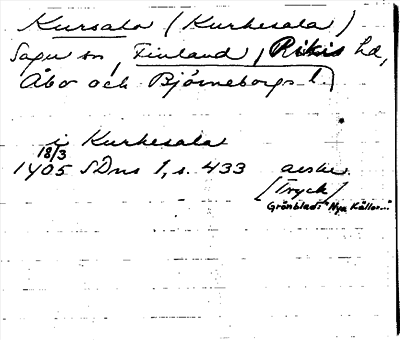 Kursala (Kurkesala)
Sagu sn, Finland, Rikis hd,
Åbo och Björneborgs l.
i Kurkesala
18/3
1405 SDns 1, s. 433 avskr.
[Tryck]
Grönblad: "Nya Källor..."